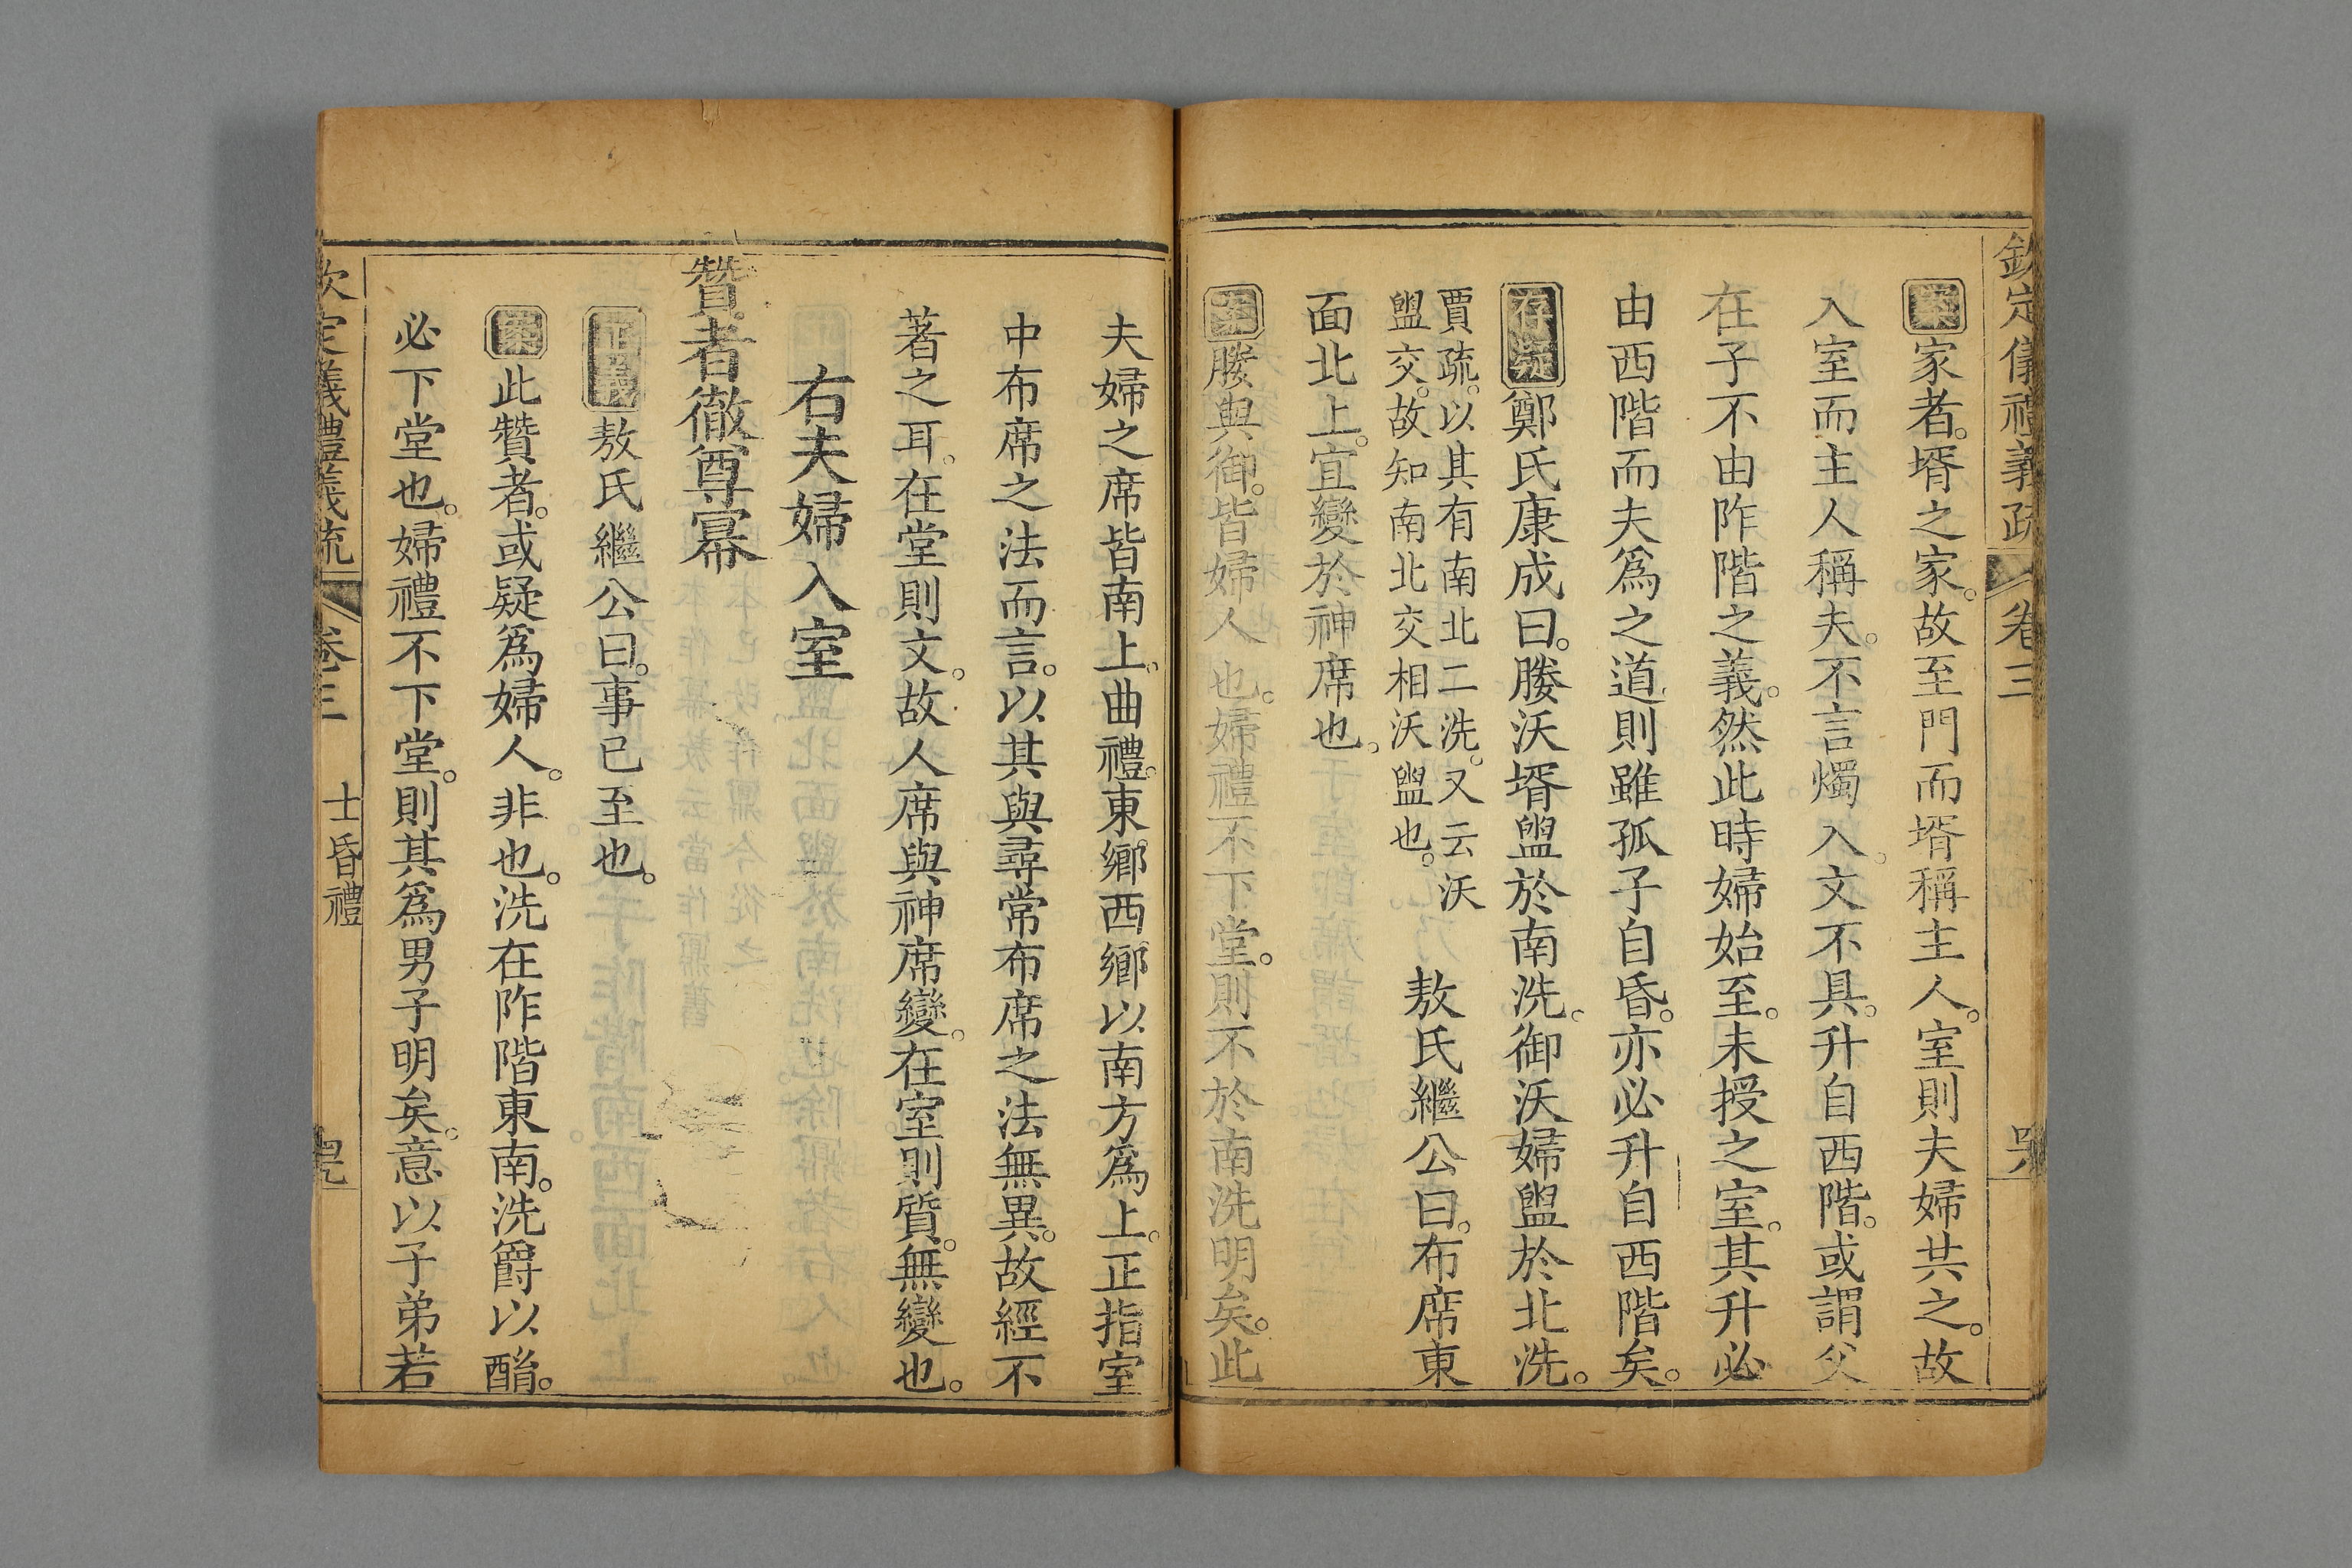 欽定儀禮義疏 卷三
案家者壻之家故至門而壻稱主人室則夫婦共之故
入室而主人稱夫不言燭入文不具升自西階或謂父
在子不由阼階之義然此時婦始至未授之室其升必
由西階而夫爲之道則雖孤子自昏亦必升自西階矣
存疑鄭氏康成曰媵沃壻盥於南洗御沃婦盥於北洗
賈疏以其有南北二洗又云沃
盥交故知南北交相沃盥也
敖氏繼公曰布席東
面北上宜變於神席也
案媵與御皆婦人也婦禮不下堂則不於南洗明矣此
夫婦之席皆南上曲禮東鄉西鄉以南方爲上正指室
中布席之法而言以其與尋常布席之法無異故經不
著之耳在堂則文故人席與神席變在室則質無變也
右夫婦入室
贊者徹尊冪
正義敖氏繼公曰事已至也
案此贊者或疑爲婦人非也洗在阼階東南洗爵以酳
必下堂也婦禮不下堂則其爲男子明矣意以子弟若
欽定儀禮義疏 卷三 士昏禮